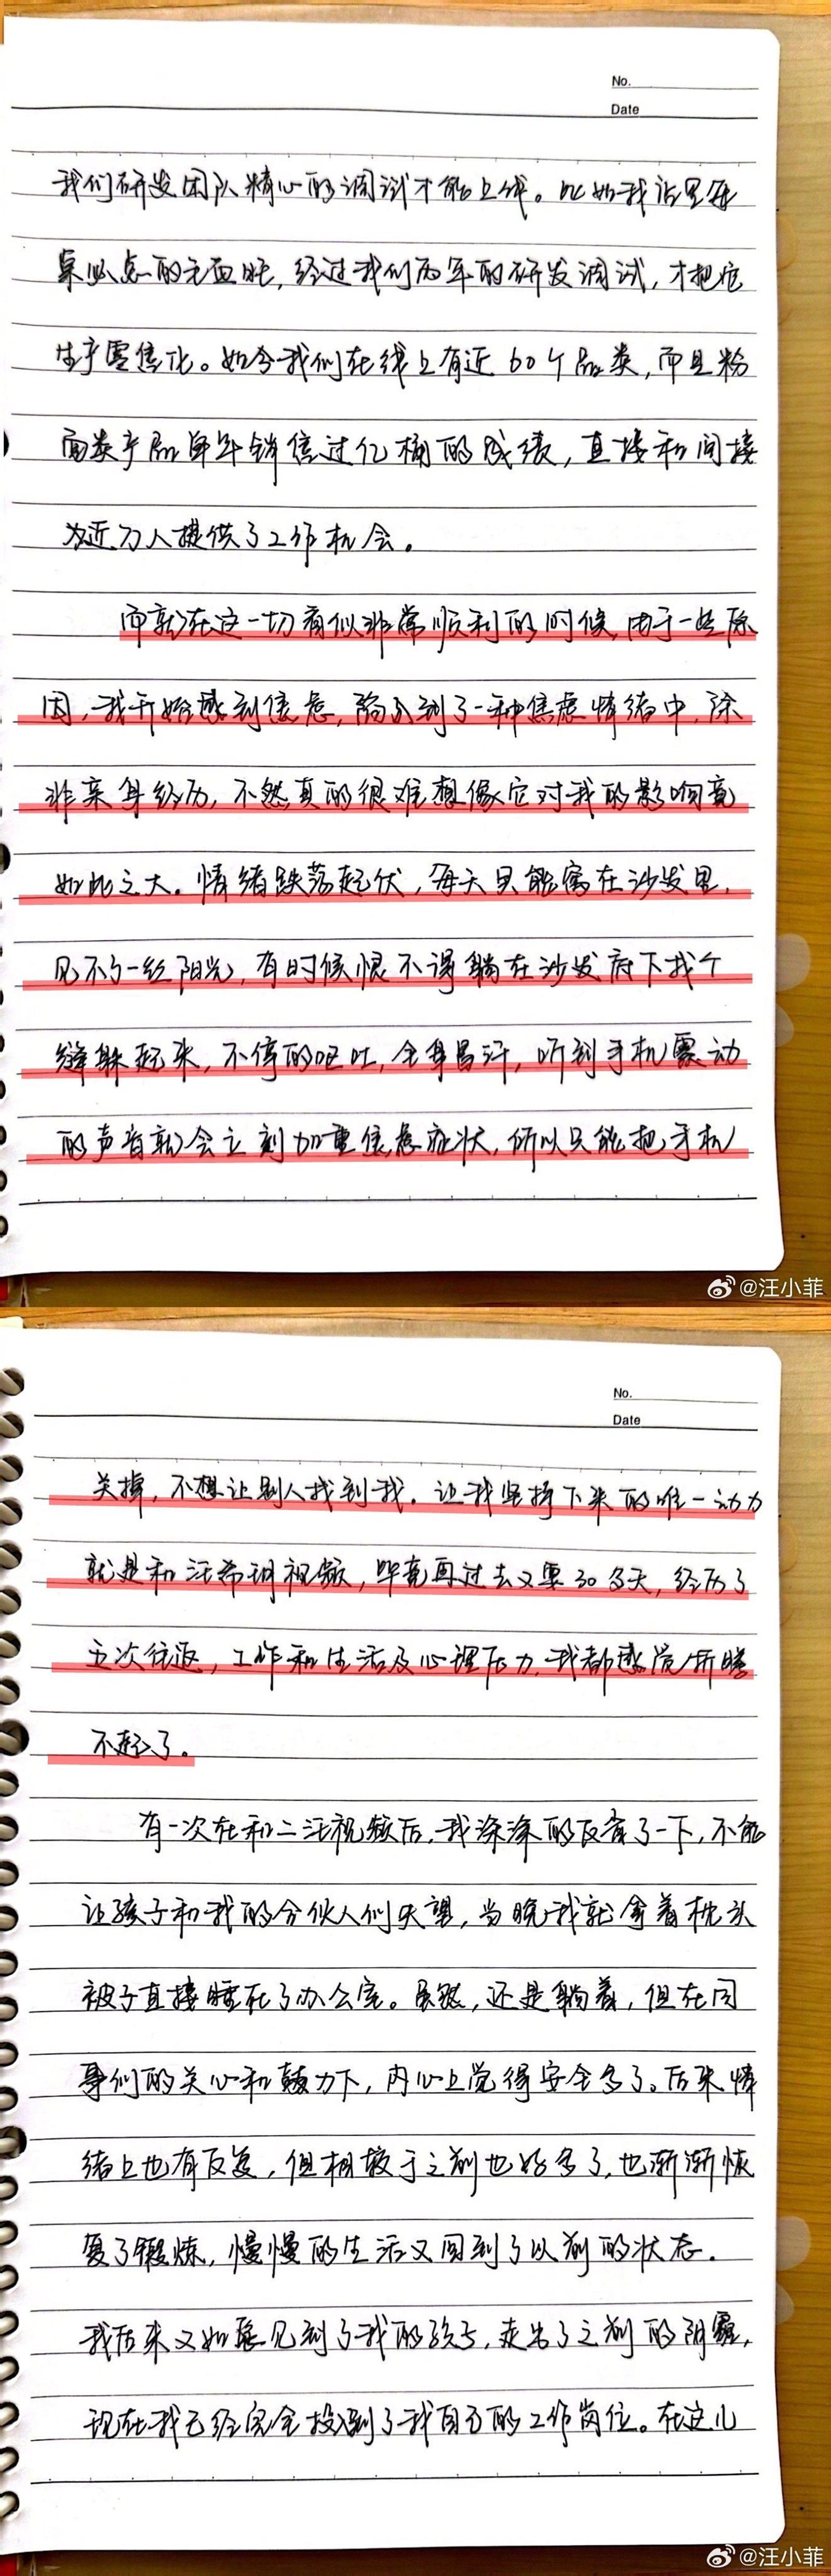 No.
Date
我们研发团队精心的调试才能上线。比如我语里每
桌必点的无血旺,经过我们两年的研发调试,才把它
生产零售化。如今我们在线上有近60个品类,而且粉
面类产品单年销售过亿桶的成绩,直接和间接
为近万人提供了工作机会。
而就在这一切看似非常顺利的时候,由于一些原
因,我开始感到焦虑,陷入到了一种焦虑情绪中,除
非亲身经历,不然真的很难想像它对我的影响竟
如此之大。情绪跌荡起伏,每天只能窝在沙发里,
见不了一丝阳光,有时候恨不得躺在沙发底下找个
缝躲起来,不停的呕吐,全身冒汗,听到手机震动
的声音就会立刻加重焦虑症状,所以只能把手机
@汪小菲
No.
Date
关掉,不想让别人找到我。让我坚持下来的唯一动力
就是和汪希玥视频,毕竟再过去又要30多天,经历了
五次往返,工作和生活及心理压力,我都感觉折腾
不起了。
有一次在和二汪视频后,我深深的反省了一下,不能
让孩子和我的合伙人们失望,当晚我就拿着枕头
被子直接睡在了办公室。虽然,还是躺着,但在同
事们的关心和鼓励下,内心上觉得安全多了。后来情
绪上也有反复,但相较于之前也好多了,也渐渐恢
复了锻炼,慢慢的生活又回到了以前的状态。
我后来又如愿见到了我的孩子,走出了之前的阴霾,
现在我已经完全投入到了我自己的工作岗位。在这儿
@汪小菲